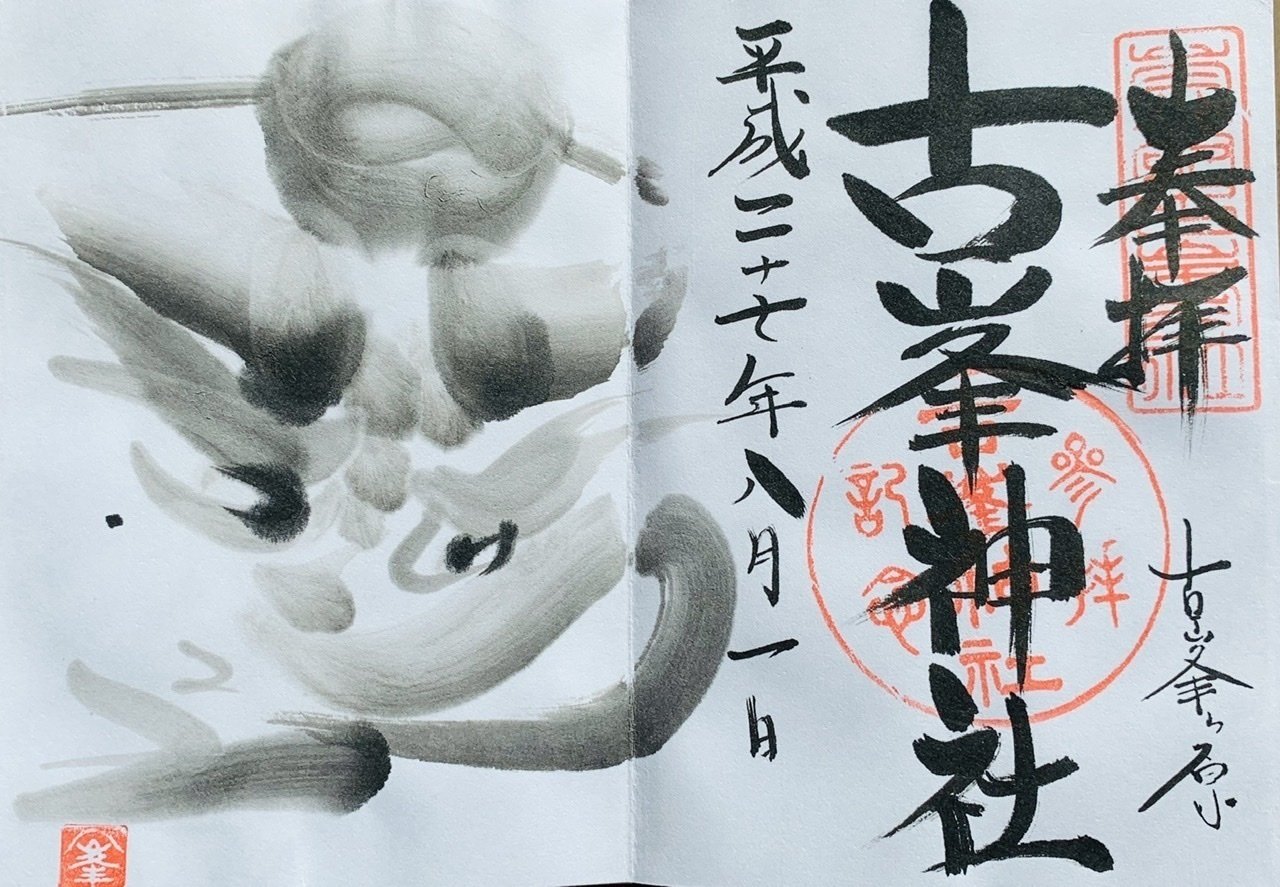 奉拝
古峯ヶ原
古峯神社
平成二十七年八月一日
参拝
古峯神社
記念
峯